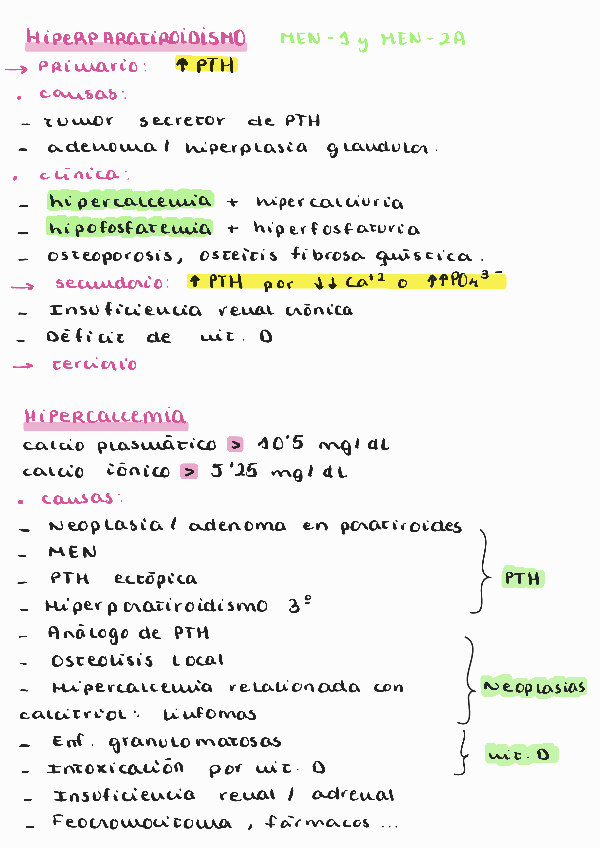 HIPERPARATIROIDISMO MEN-1 y MEN-2A
→ PRIMARIO: ↑ PTH
• causas:
- tumor secretor de PTH
- adenoma / hiperplasia glandular.
• clínica:
- hipercalcemia + hipercalciuria
- hipofosfatemia + hiperfosfaturia
- osteoporosis, osteítis fibrosa quística.
→ secundario: ↑ PTH por ↓↓ Ca⁺² o ↑↑PPO₄³⁻
- Insuficiencia renal crónica
- Déficit de vit. D
→ terciario
HIPERCALCEMIA
calcio plasmático > 10'5 mg/dL
calcio iónico > 5'25 mg/dL
• causas:
- Neoplasia / adenoma en paratiroides
- MEN
- PTH ectópica
PTH
- Hiperparatiroidismo 3º
- Análogo de PTH
- Osteolisis local
- Hipercalcemia relacionada con
Neoplasias
calcitriol: linfomas
- Enf. granulomatosas
- Intoxicación por vit. D
vit. D
- Insuficiencia renal / adrenal
- Feocromocitoma, fármacos ...